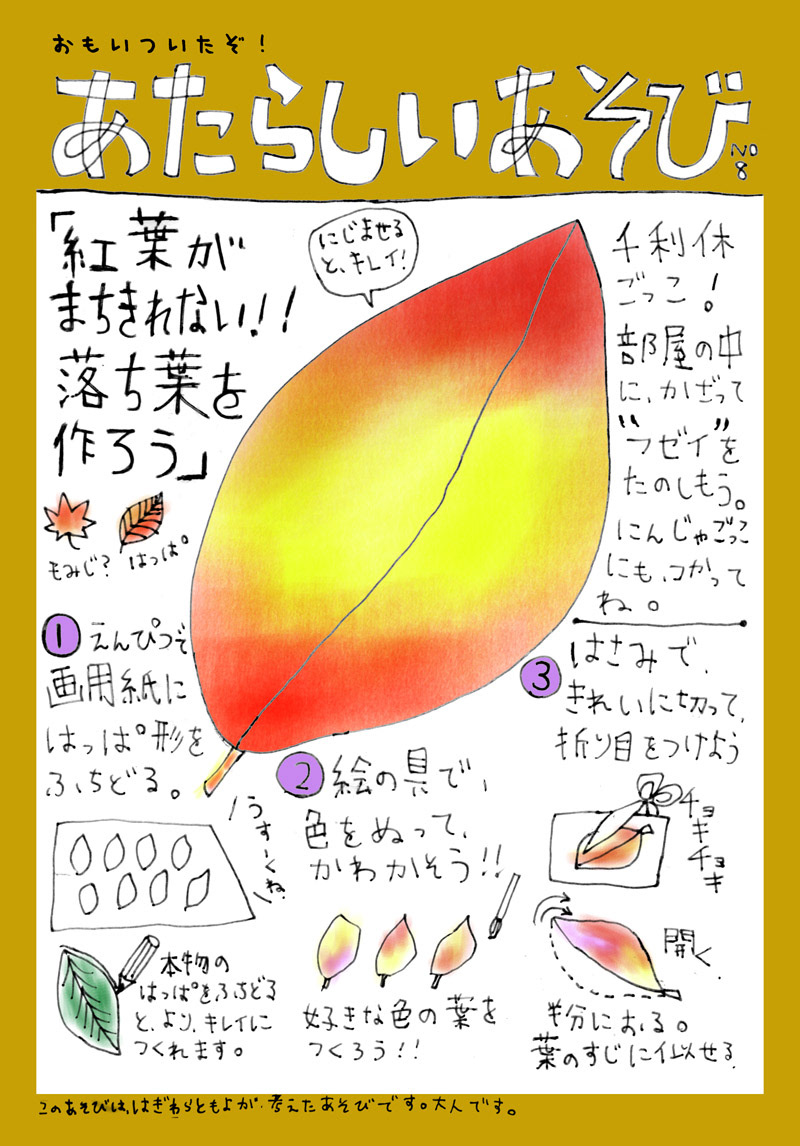 おもいついたぞ！
あたらしいあそび
No
8
「紅葉が
まちきれない！！
落ち葉を
作ろう」
もみじ？
はっぱ
にじませる
と、キレイ！
千利休
ごっこ！
部屋の中
に、かざって
"フゼイ"を
たのしもう。
にんじゃごっこ
にも、つかって
ね。
1 えんぴつで
画用紙に
はっぱ形を
ふちどる。
うすーくね
本物の
はっぱをふちどる
と、より、キレイに
つくれます。
2 絵の具で、
色をぬって、
かわかそう！！
好きな色の葉を
つくろう！！
3 はさみで、
きれいに切って、
折り目をつけよう
チョキチョキ
開く、
半分におる。
葉のすじに似せる
このあそびは、はぎわらともよが、考えたあそびです。大人です。